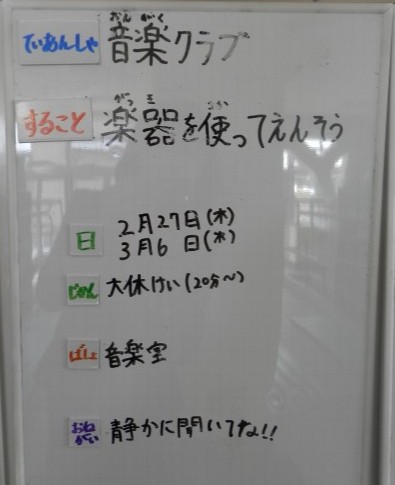 ていあんしゃ 音楽クラブ
おんがく
すること 楽器を使ってえんそう
がっき つか
日 2月27日(木)
3月6日(木)
じかん 大休けい(20分〜)
ばしょ 音楽室
おねがい 静かに聞いてな!!